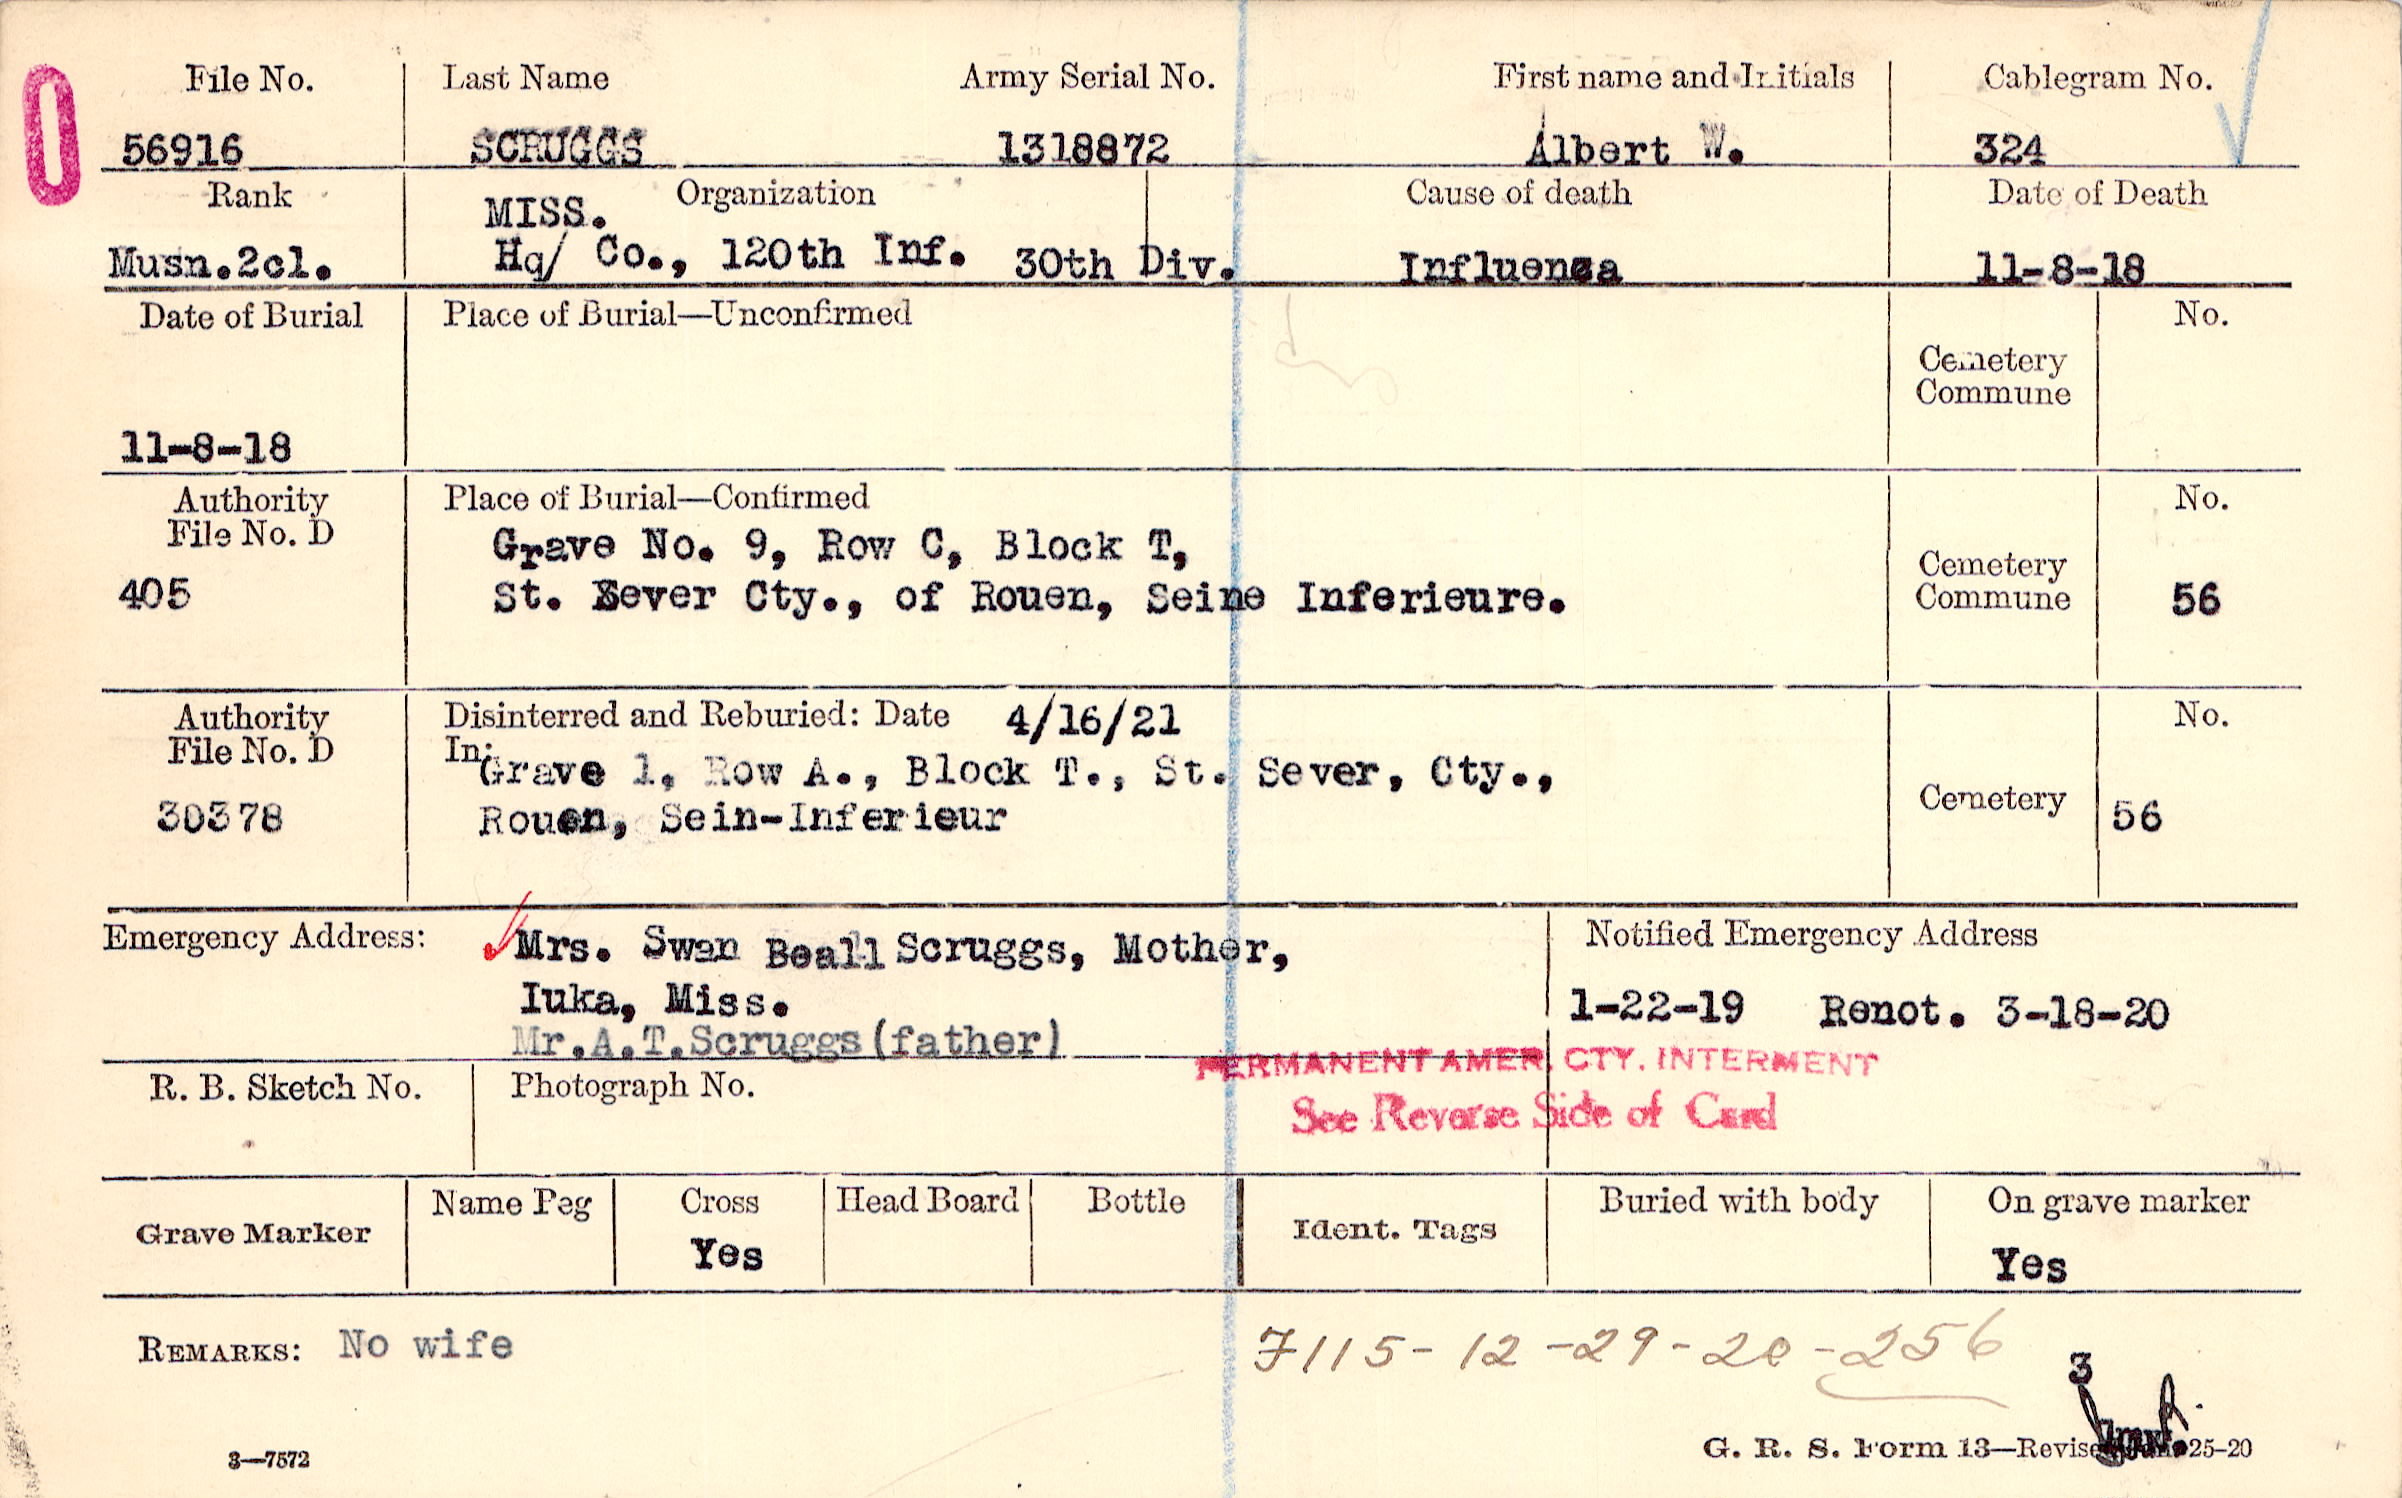 File No. Last Name Army Serial No. First name and Initials Cablegram No.
56916 SCRUGGS 1318872 Albert W. 324
Rank Organization Cause of death Date of Death
MISS.
Musn.2cl. Hq/ Co., 120th Inf. 30th Div. Influenza 11-8-18
Date of Burial Place of Burial—Unconfirmed No.
Cemetery
Commune
11-8-18
Authority Place of Burial—Confirmed No.
File No. D
Grave No. 9, Row C, Block T,
Cemetery
405 St. Sever Cty., of Rouen, Seine Inferieure. Commune 56
Authority Disinterred and Reburied: Date 4/16/21 No.
File No. D In:
Grave 1, Row A., Block T., St. Sever, Cty.,
30378 Rouen, Sein-Inferieur Cemetery 56
Emergency Address: Mrs. Swan Beall Scruggs, Mother, Notified Emergency Address
Iuka, Miss. 1-22-19 Renot. 3-18-20
Mr.A.T.Scruggs(father)
PERMANENT AMER. CTY. INTERMENT
R. B. Sketch No. Photograph No.
See Reverse Side of Card
Grave Marker Name Peg Cross Head Board Bottle Ident. Tags Buried with body On grave marker
Yes Yes
REMARKS: No wife 7115-12-29-20-256
3
3—7572 G. R. S. Form 13—Revised 25-20